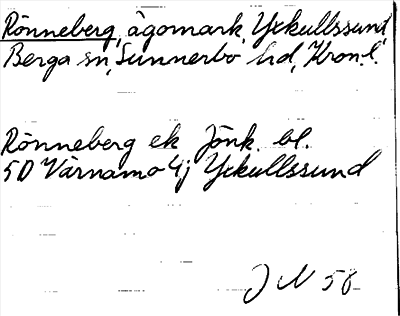 Rönneberg, ägomark, Yxkullssund,
Berga sn, Sunnerbo hd, Kron.l.
Rönneberg ek Jönk. bl.
5D Värnamo 4j Yxkullssund
J N 58